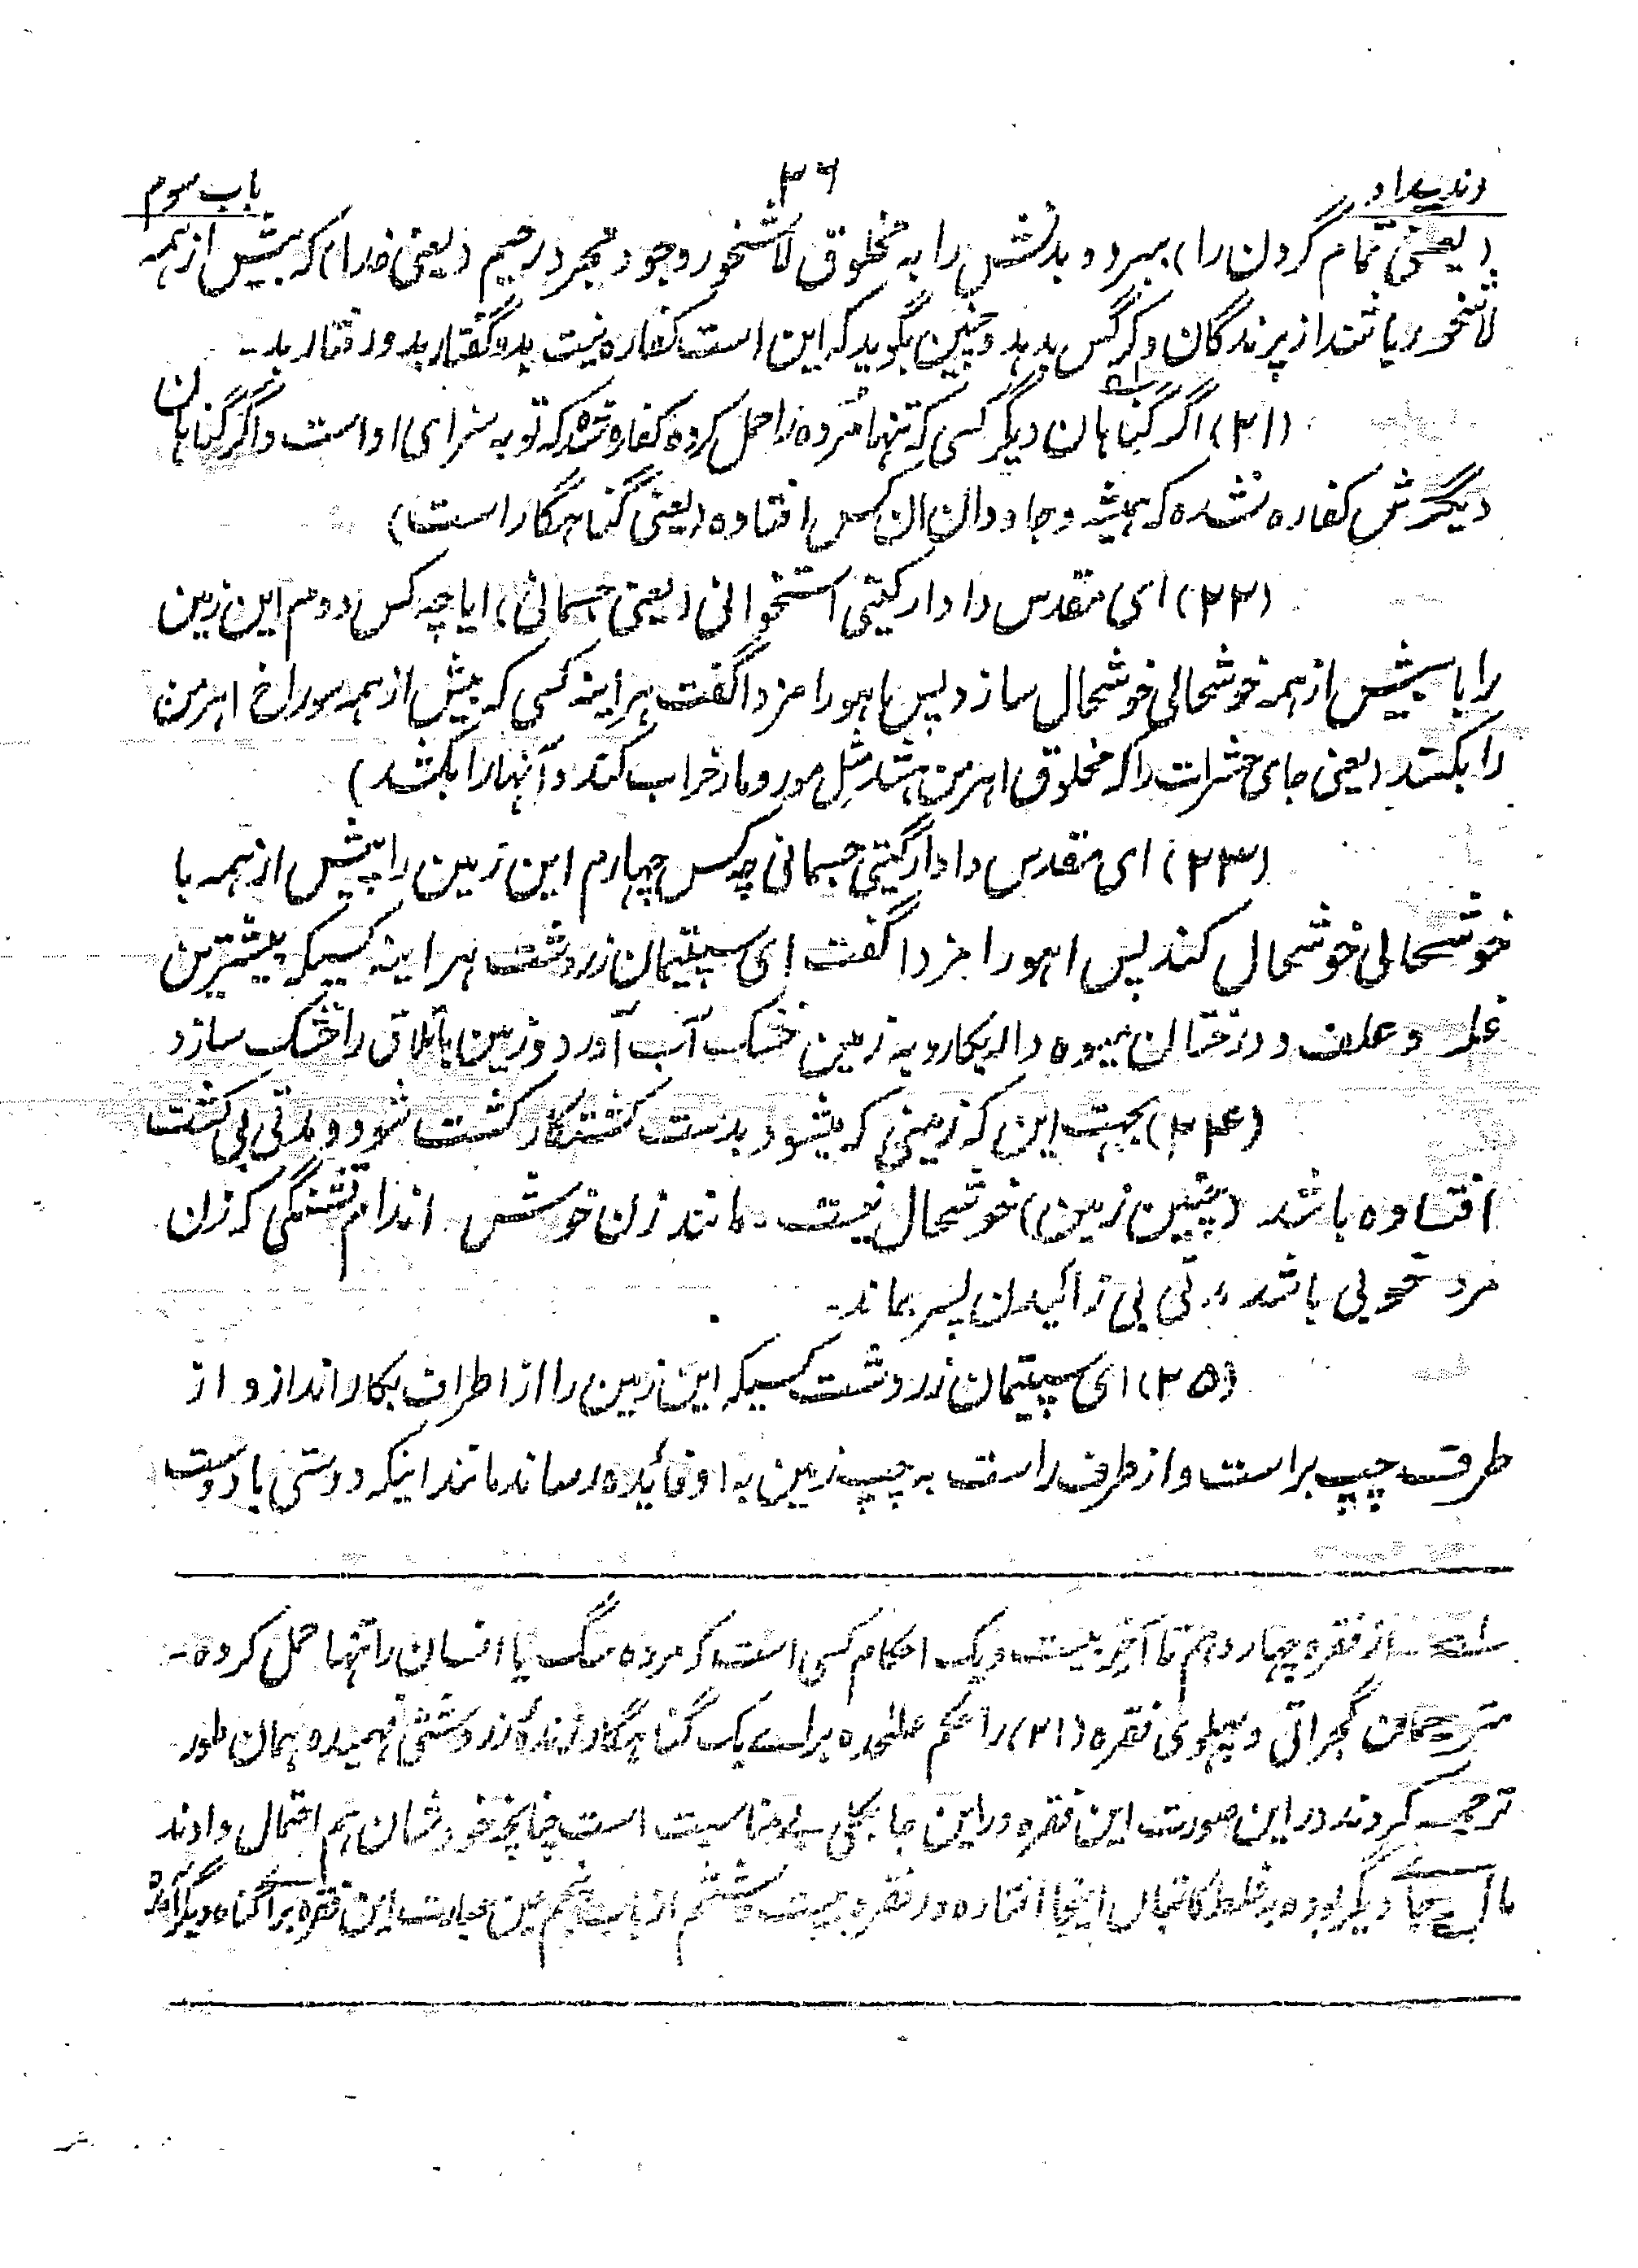 وندیداد
۳۶
باب سوم
(یعنی تمام گردن را) ببرد و بدنش را به مخلوق لاشخور وجود مجرد رحیم (یعنی خدا) که بیش از همه
لاشخور باشند از پرندگان و کرگس بدهد و چنین بگوید که این است کفاره نیت بد و گفتار بد و رفتار بد-
(۲۱) اگر گناهان دیگر کسی که تنها مُرده را حمل کرده کفاره شده که توبه سزای او است و اگر گناهان
دیگرش کفاره نشده که همیشه و جاودان ان کس افتاده (یعنی گناهگار است)
(۲۲) ای مقدس دادار گیتی استخوانی (یعنی جسمانی) ایا چه کس دوم این زمین
را با بیش از همه خوشحالی خوشحال سازد پس اهورا مزدا گفت هر اینه کسی که بیش از همه سوراخ اهرمن
را بکند (یعنی جای حشرات را که مخلوق اهرمن هستند مثل مور و مار خراب کند و آنها را بکشد)
(۲۳) ای مقدس دادار گیتی جسمانی چه کس چهارم این زمین را بیش از همه با
خوشحالی خوشحال کند پس اهورا مزدا گفت ای سپتیمان زردشت هر اینه کسیکه بیشترین
غله و علف و درختان میوه دار بکارد به زمین خشک آب آورد و زمین باتلاق را خشک سازد
(۲۴) بجهت این که زمینی که میشود بدست کشتکار کشت شود و مدتی بی کشت
افتاده باشد (چنین زمین) خوشحال نیست- مانند زن خوش اندام قشنگی که زن
مرد خوبی باشد مدتی بی زائیدن پسر بماند-
(۲۵) ای سپتیمان زردشت کسیکه این زمین را از اطراف بکار اندازد از
طرف چپ براست و از طرف راست به چپ زمین به او فائیده رساند مانند اینکه دوستی با دوست
سله از فقره چهاردهم تا آخر بیست و یک احکام کسی است که مرده سگ یا انسان را تنها حمل کرده-
مترجمان گجراتی و پهلوی فقره (۲۱) را حکم علیحده برای یک گناهگار زنده زردشتی فهمیده همان طور
ترجمه کردند در این صورت این فقره در این جا بکلی بی مناسبت است چنانچه خودشان هم احتمال دادند
مال جای دیگر بوده به غلط کاتبان اینجا افتاده در فقره بیست و ششم از باب پنجم عین عبارت این فقره برای گناه دیگر آمده